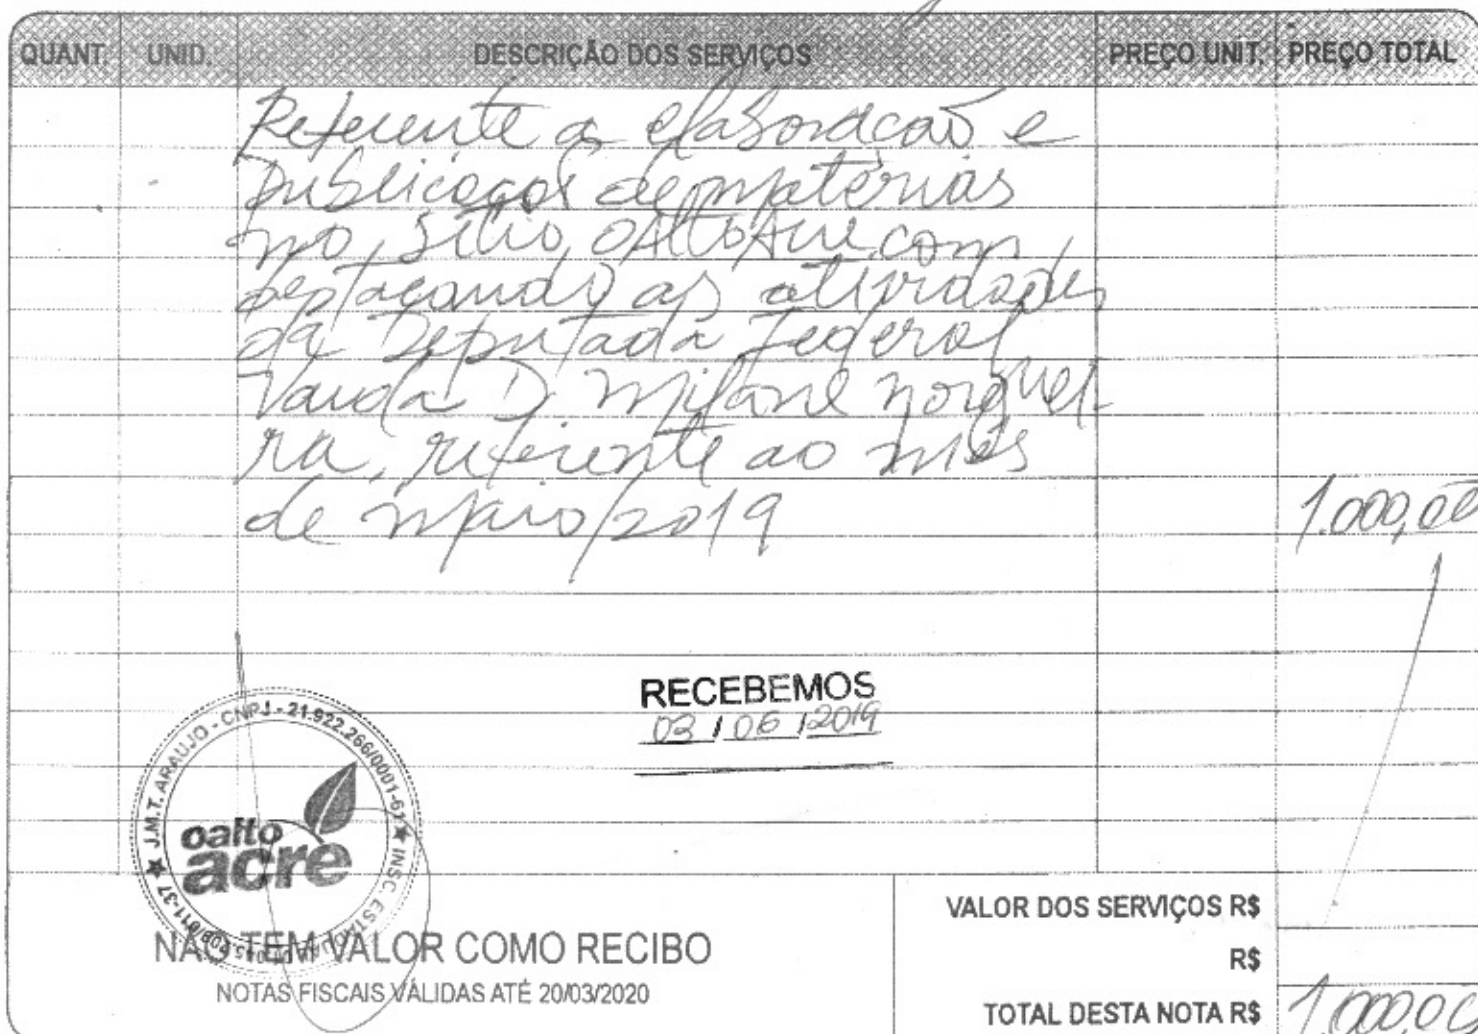 QUANT. UNID. DESCRIÇÃO DOS SERVIÇOS PREÇO UNIT. PREÇO TOTAL
Referente a elaboracaõ e
publicaçoẽs de matérias
no Sítio OAltoAcre.com
destacando as atividades
da Deputada Federal
Vanda D Milane noiguei-
ra, referente ao mês
de maio/2019 1.000,00
RECEBEMOS
03/06/2019
J.M.T. ARAUJO - CNPJ - 21.922.266/0001-61 ★ INSC. ESTADUAL
oalto
acre
VALOR DOS SERVIÇOS R$
NÃO TEM VALOR COMO RECIBO
R$
NOTAS FISCAIS VÁLIDAS ATÉ 20/03/2020
TOTAL DESTA NOTA R$ 1.000,00